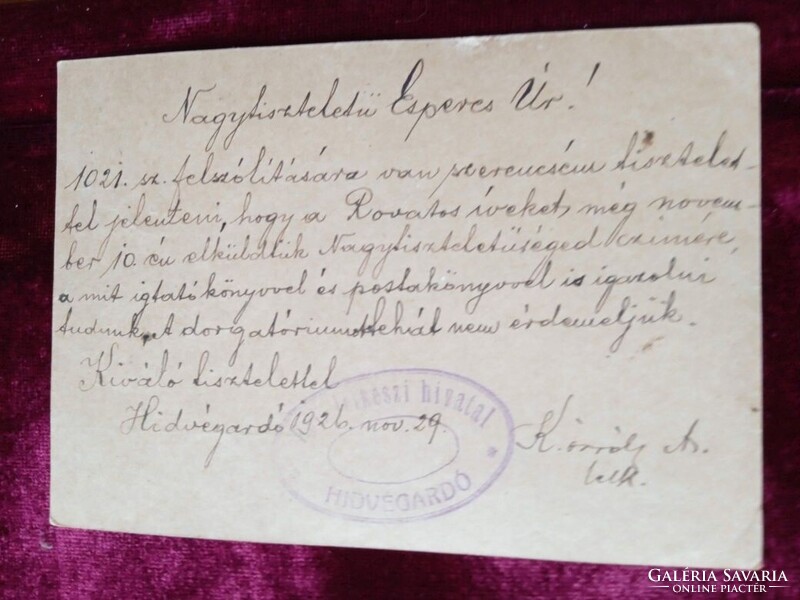 Nagytiszteletü Esperes Úr!
1021. sz. felszólítására van szerencsém tisztelet-
tel jelenteni, hogy a Rovatos íveket még novem-
ber 10.-én elküldtük Nagytiszteletűséged czimére,
a mit igtatókönyvvel és postakönyvvel is igazolni
tudunk. A dorgatóriumot tehát nem érdemeljük.
Kiváló tisztelettel
Hidvégardó 1926. nov. 29.
lelkészi hivatal
HIDVÉGARDÓ
lelk.
GALÉRIA SAVARIA
ONLINE PIACTÉR
WWW.GALERIASAVARIA.HU